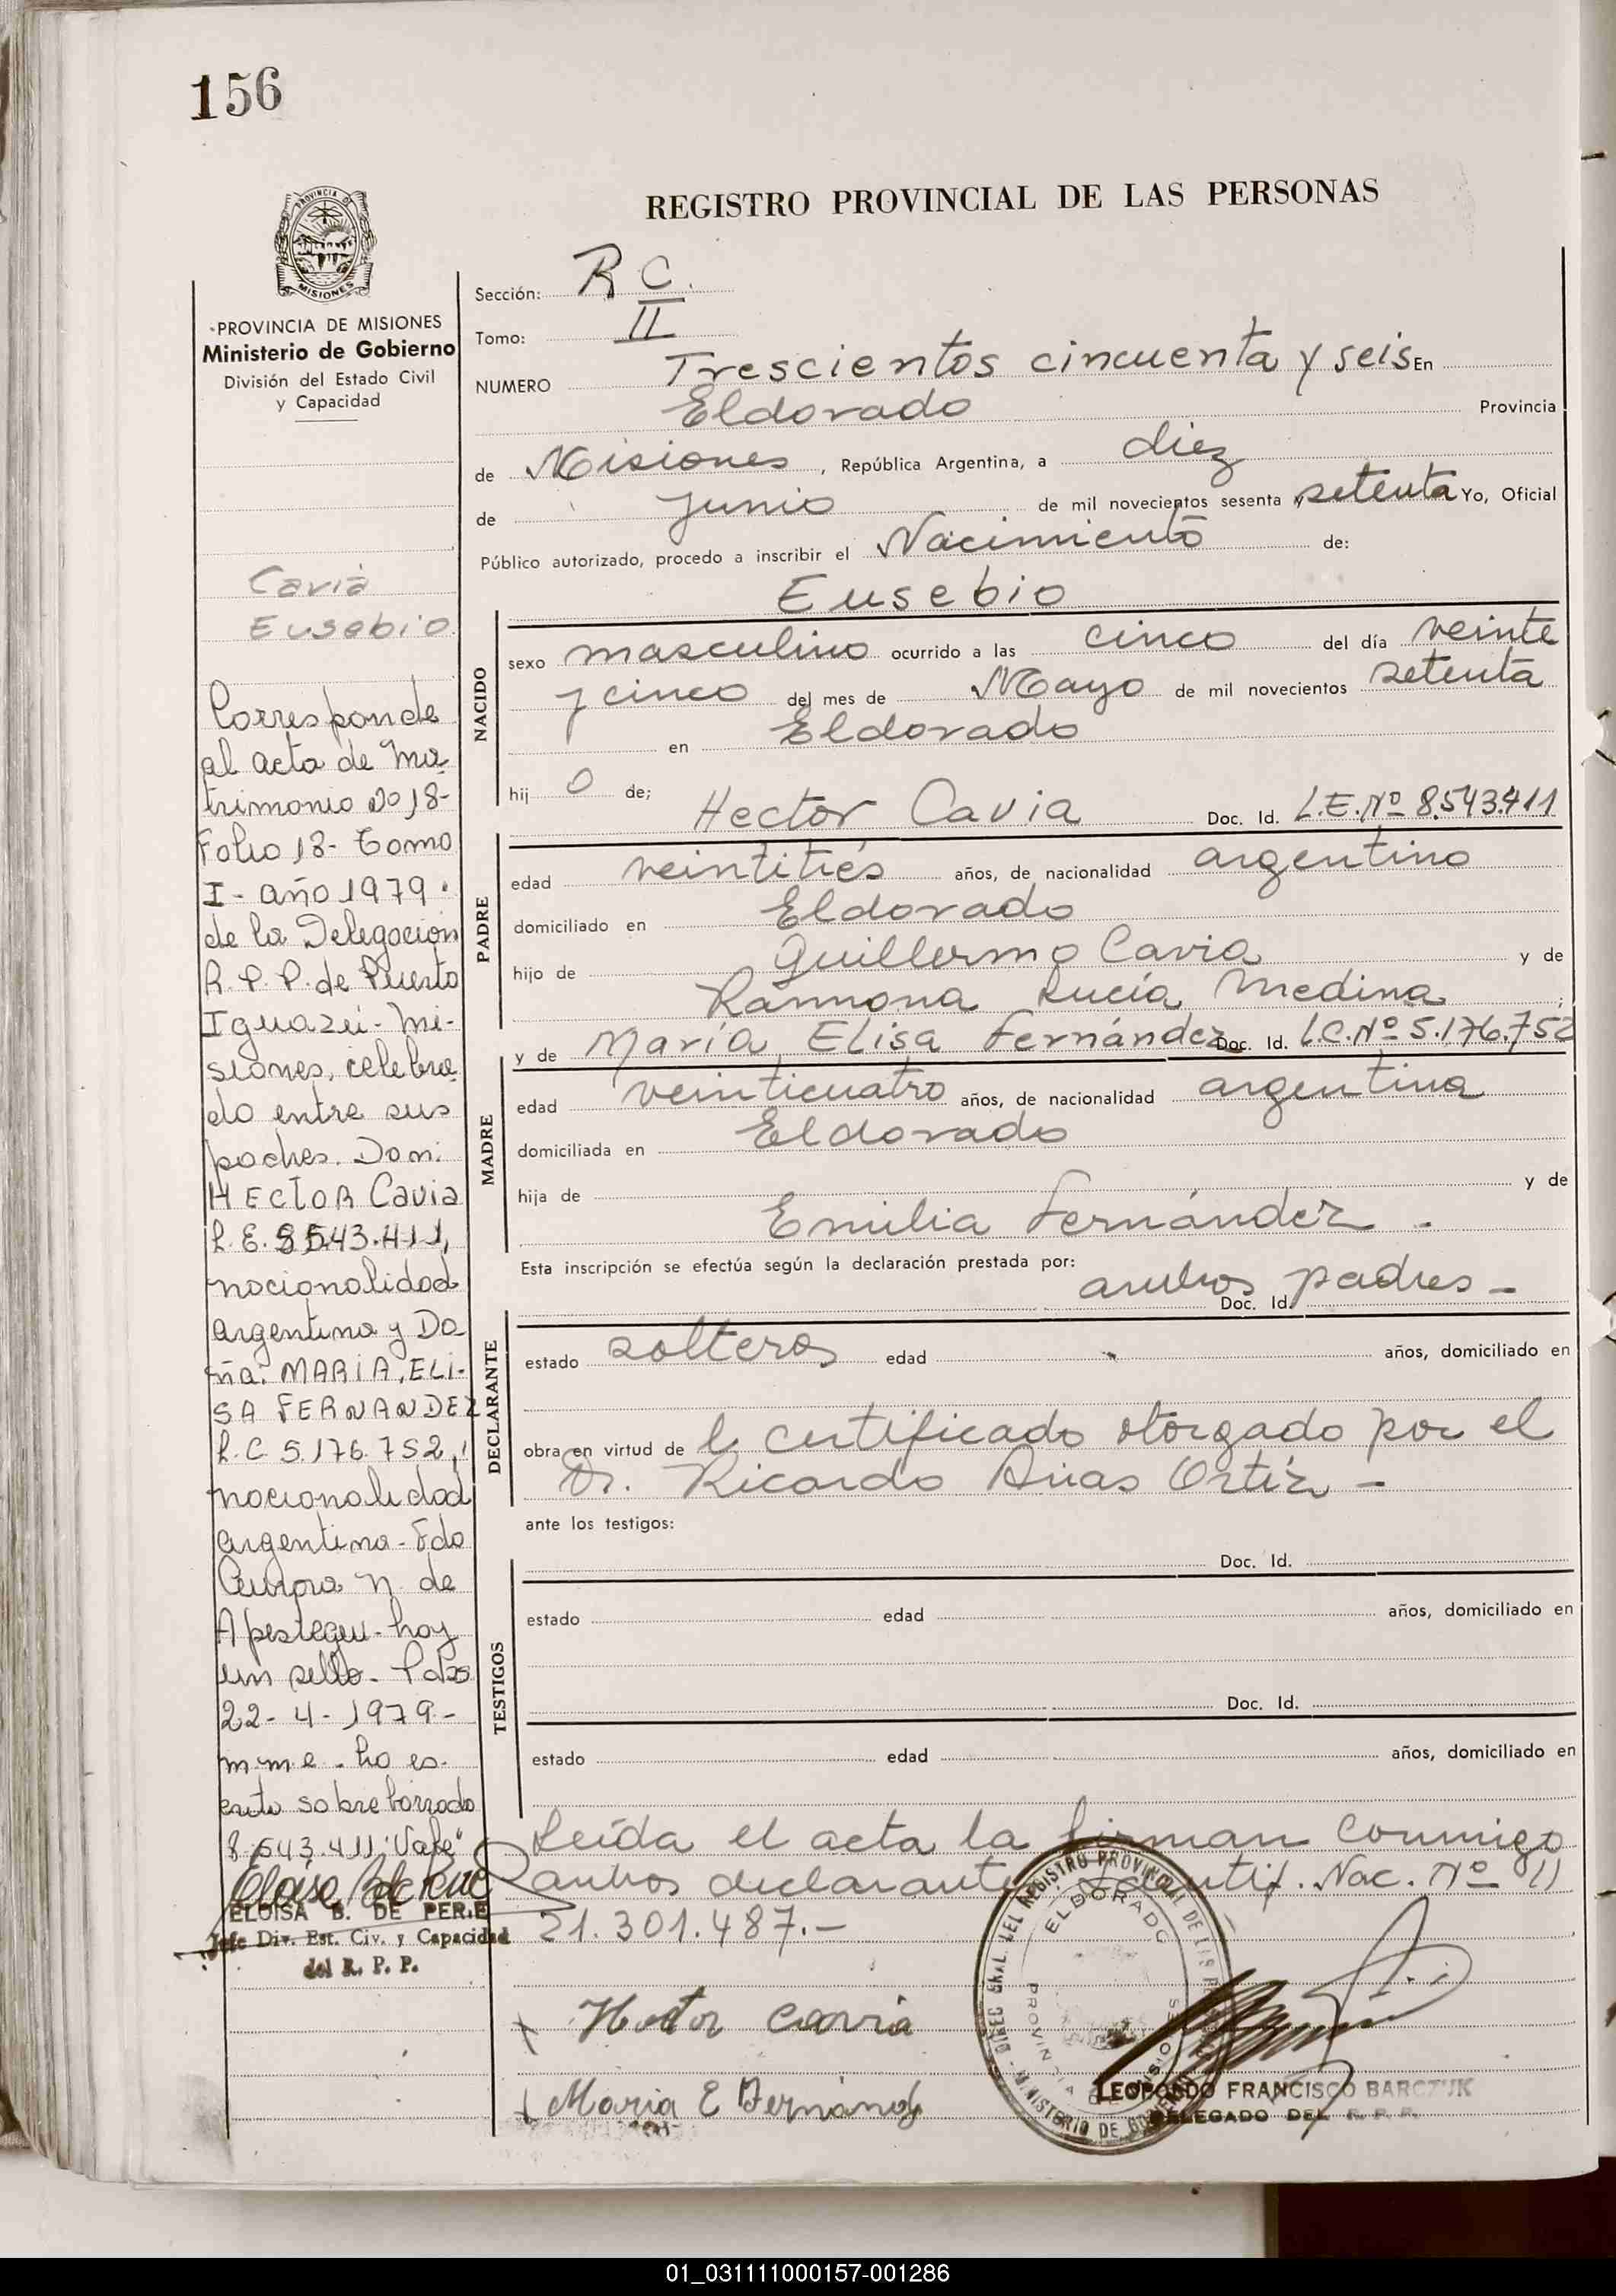 156
REGISTRO PROVINCIAL DE LAS PERSONAS
PROVINCIA DE
MISIONES
PROVINCIA DE MISIONES
Ministerio de Gobierno
División del Estado Civil
y Capacidad
Cavia
Eusebio
Corresponde
al acta de Ma-
trimonio No 18-
Folio 18- Tomo
I- año 1979.
de la Delegacion
R. P. P. de Puerto
Iguazú- Mi-
siones, celebra-
do entre sus
padres. Don:
HECTOR Cavia
L. E. 8.543.411,
nacionalidad
argentina y Do-
ña: MARIA, ELI-
SA FERNANDEZ
L. C 5.176.752,
nacionalidad
argentina- Fdo
Aurora N. de
Apestegui- hay
un sello- Pdas
22- 4- 1979-
m.m.e- lo es-
crito sobre borrado
8.543.411 "Vale"
ELOISA B. DE PERIE
Jefe Div. Est. Civ. y Capacidad
del R. P. P.
Sección: R C.
Tomo: II
NUMERO Trescientos cincuenta y seis En
Eldorado Provincia
de Misiones, República Argentina, a diez
de Junio de mil novecientos sesenta y setenta Yo, Oficial
Público autorizado, procedo a inscribir el Nacimiento de:
Eusebio
NACIDO
sexo masculino ocurrido a las cinco del día veinte
y cinco del mes de Mayo de mil novecientos setenta
en Eldorado
hij o de;
Hector Cavia Doc. Id. L.E. Nº 8.543.411
PADRE
edad veintitrés años, de nacionalidad argentino
domiciliado en Eldorado
hijo de Guillermo Cavia y de
Rammona Lucía Medina
y de María Elisa Fernández Doc. Id. L.C. Nº 5.176.752
MADRE
edad veinticuatro años, de nacionalidad argentina
domiciliada en Eldorado
hija de y de
Emilia Fernández -
Esta inscripción se efectúa según la declaración prestada por:
ambos padres - Doc. Id.
DECLARANTE
estado solteros edad años, domiciliado en
obra en virtud de l certificado otorgado por el
Dr. Ricardo Arias Ortiz -
ante los testigos:
Doc. Id.
TESTIGOS
estado edad años, domiciliado en
Doc. Id.
estado edad años, domiciliado en
Leída el acta la firman conmigo
ambos declarantes Identif. Nac. Nº
21.301.487.-
Hector Cavia
Maria E Fernandez
DIREC. GRAL. DEL REGISTRO PROVINCIAL DE LAS
ELDORADO
MINISTERIO DE GOBIERNO
LEOPOLDO FRANCISCO BARCZUK
DELEGADO DEL R. P. P.
01_031111000157-001286